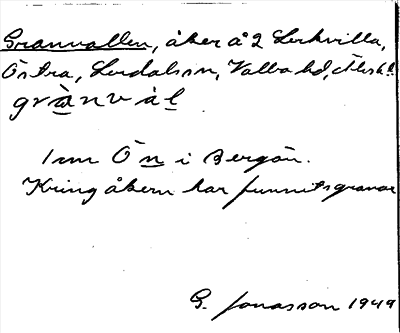 Granvallen, åker å 2 Lerkvilla,
Östra, Lerdalssn, Valbo hd, Älvsb.l.
grànvál
1 mm Ön i Bergön.
Kring åkern har funnits granar
G. Jonasson 1949